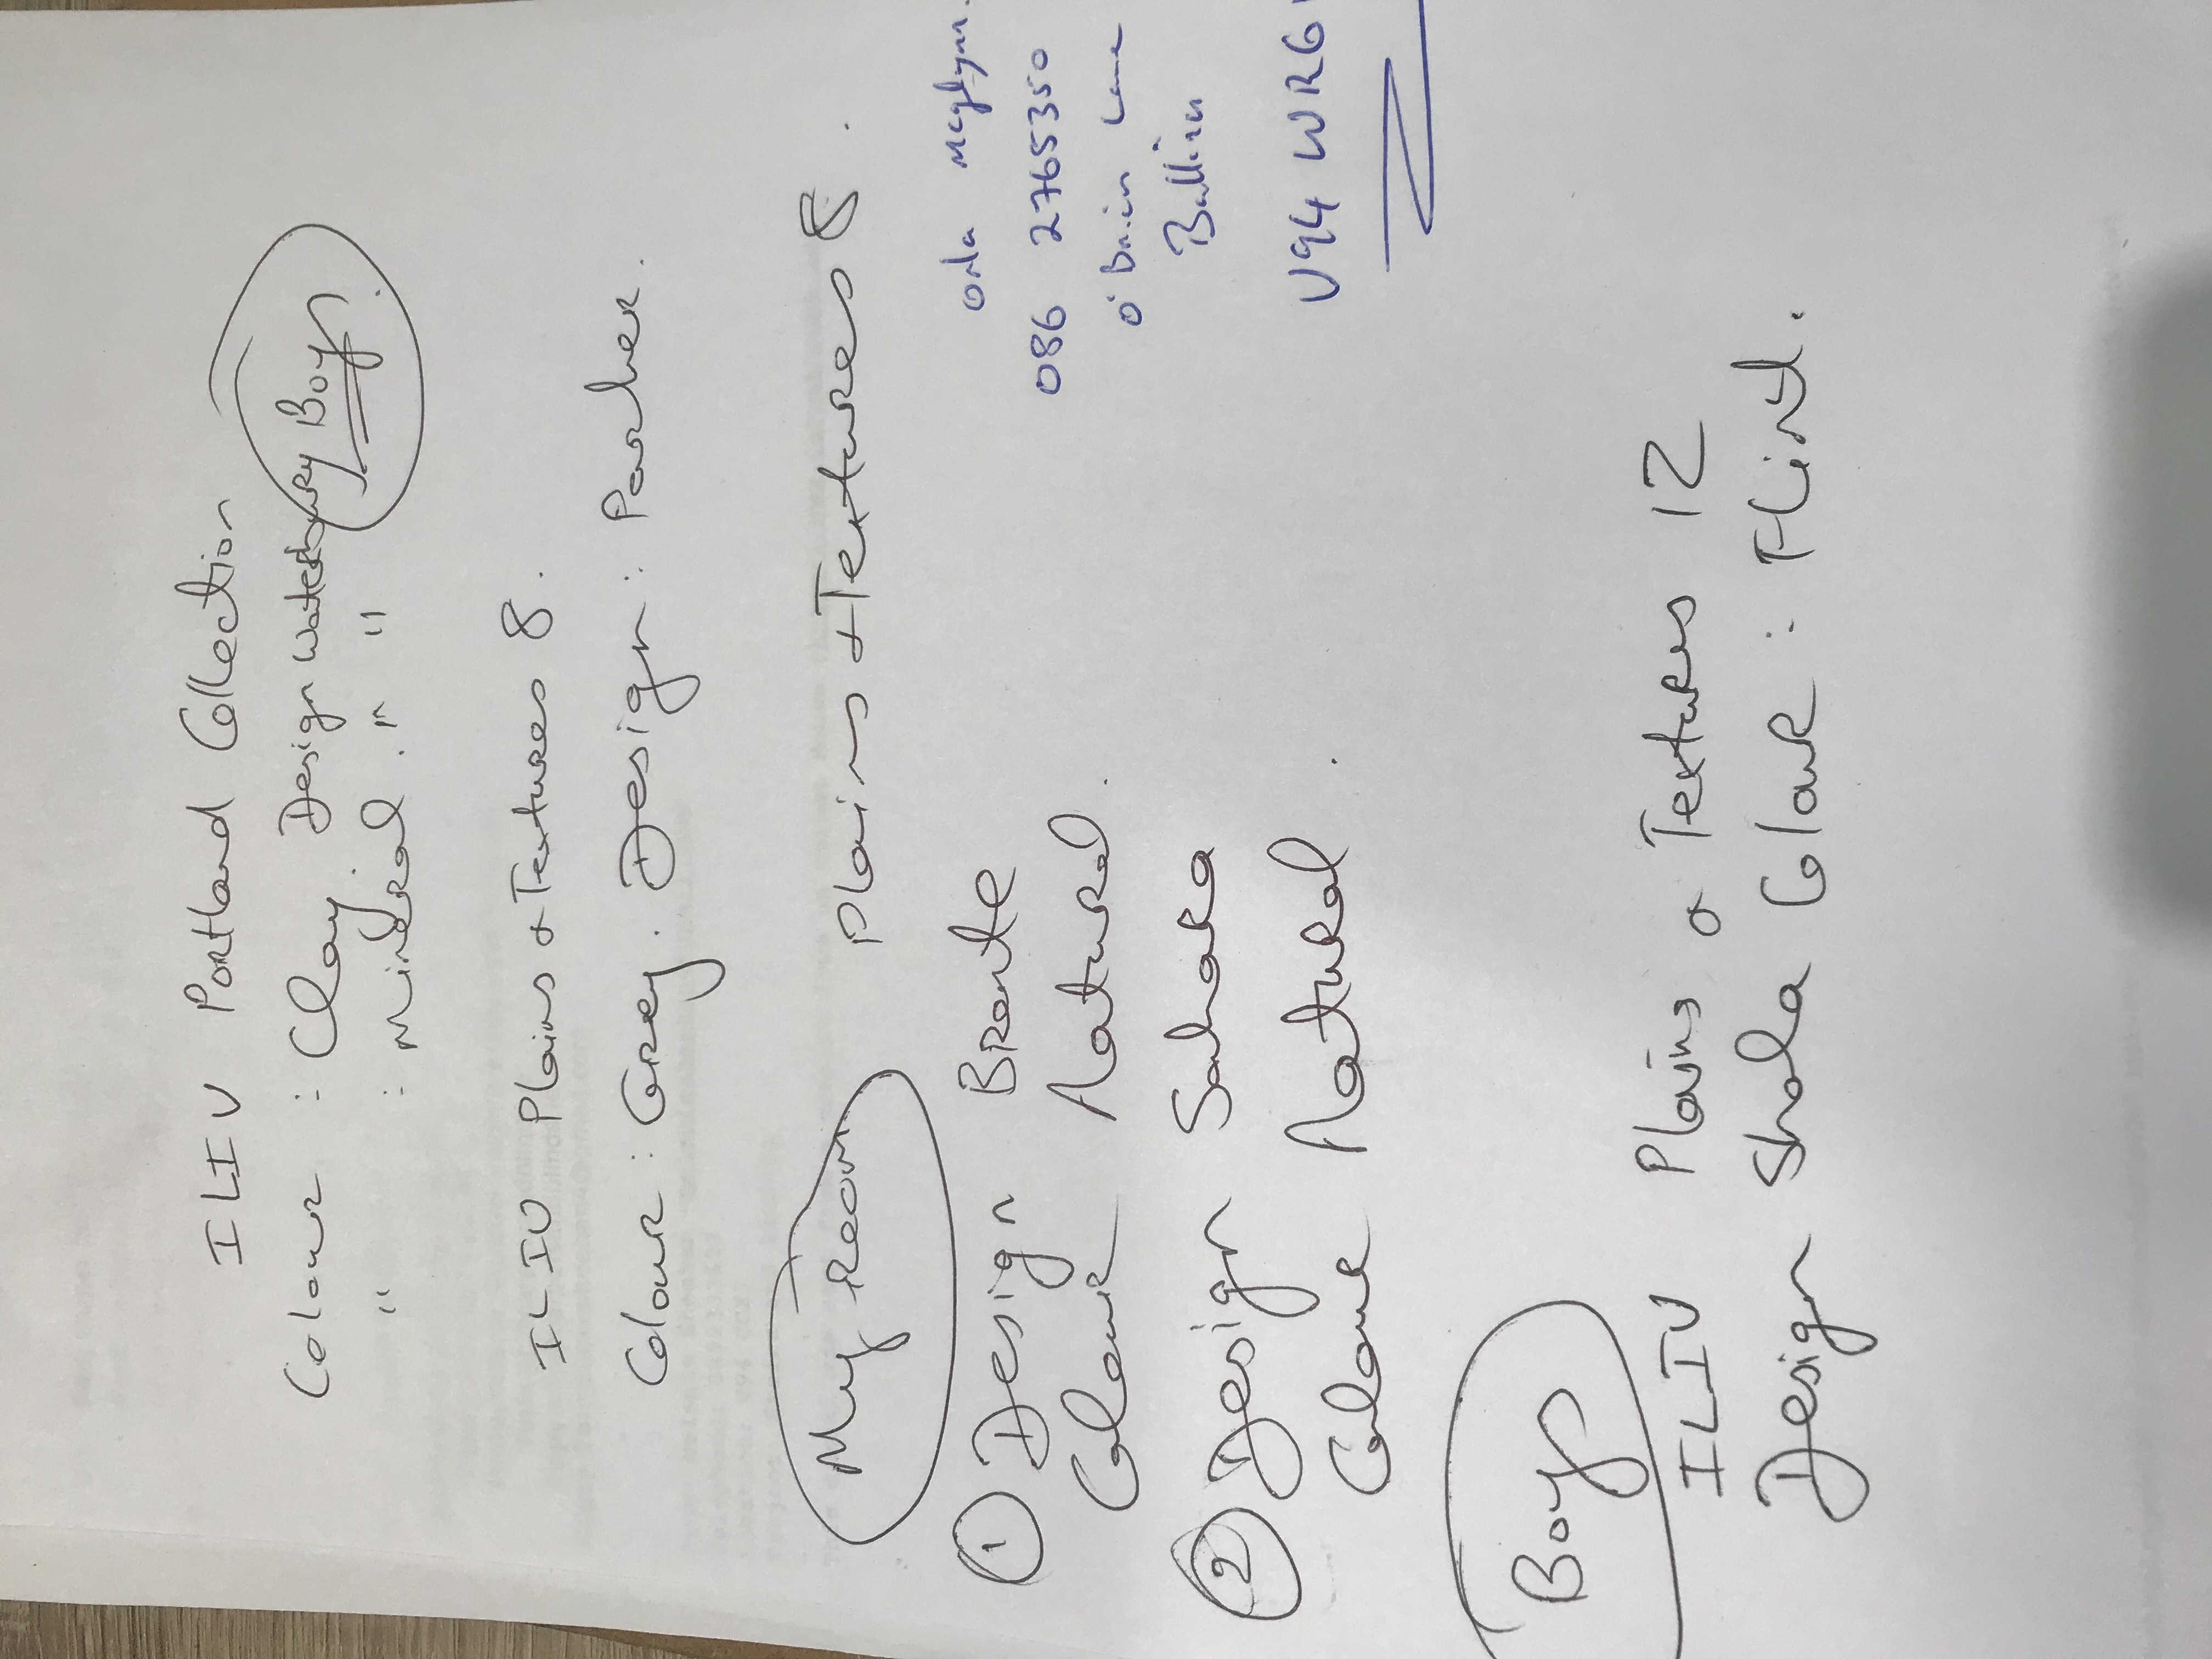 ILIV Portland Collection
Colour : Clay Design Waterbury Boy
" : Mineral . " "
ILIV Plains & Textures 8.
Colour : Grey. Design : Parker.
My Room Plains + Textures 8.
① Design Bronte
Colour Natural.
② Design Sahara
Colour Natural.
Boy
ILIV Plains & Textures 12
Design Shola Colour : Flint.
Orla McGlynn.
086 2765350
O'Brien Lane
Ballina
V94 WR6